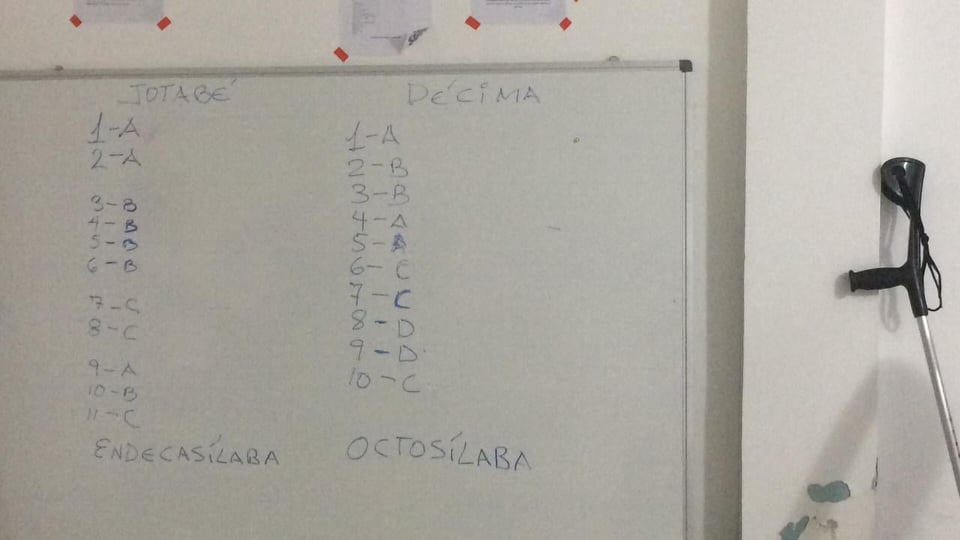 JOTABÉ
1-A
2-A
3-B
4-B
5-B
6-B
7-C
8-C
9-A
10-B
11-C
ENDECASÍLABA
DÉCIMA
1-A
2-B
3-B
4-A
5-A
6-C
7-C
8-D
9-D
10-C
OCTOSÍLABA